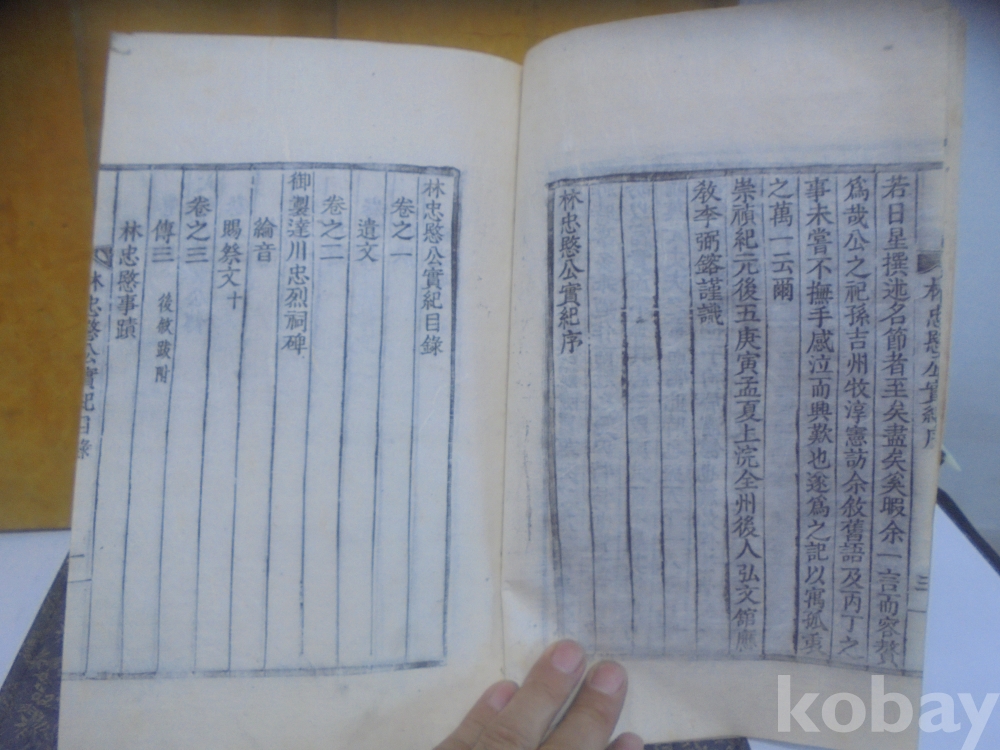 若日星撰述名節者至矣盡矣奚暇余一言而容贅
爲哉公之祀孫吉州牧淳憲訪余敘舊語及丙丁之
事未嘗不撫手感泣而興歎也遂爲之記以寓孤衷
之萬一云爾
崇禎紀元後五庚寅孟夏上浣全州後人弘文館應
敎李弼鎔謹識
林忠愍公實紀序
林忠愍公實紀序
三
林忠愍公實紀目錄
卷之一
遺文
卷之二
御製達川忠烈祠碑
綸音
賜祭文十
卷之三
傳三 後敘跋附
林忠愍事蹟
林忠愍公實紀目錄
一
kobay